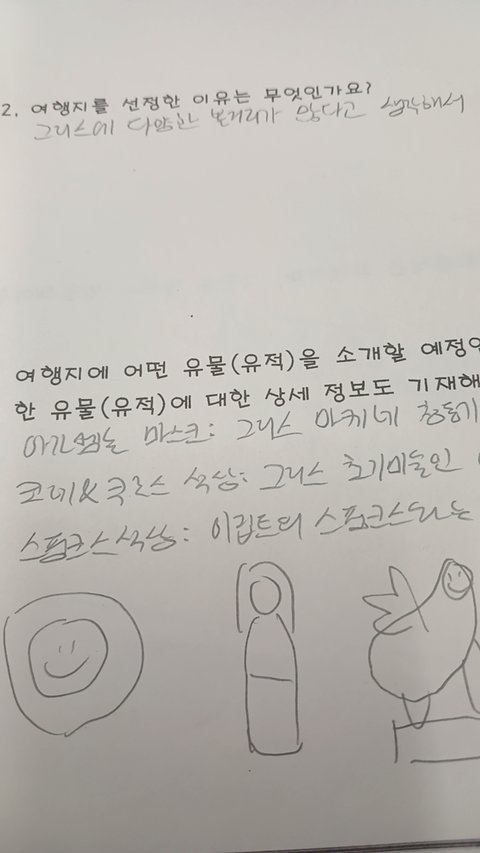 2. 여행지를 선정한 이유는 무엇인가요?
그리스에 다양한 볼거리가 많다고 생각해서
여행지에 어떤 유물(유적)을 소개할 예정
한 유물(유적)에 대한 상세 정보도 기재해
아가멤논 마스크: 그리스 미케네 청동기
코레&쿠로스 석상: 그리스 초기미술인
스핑크스석상: 이집트의 스핑크스와는